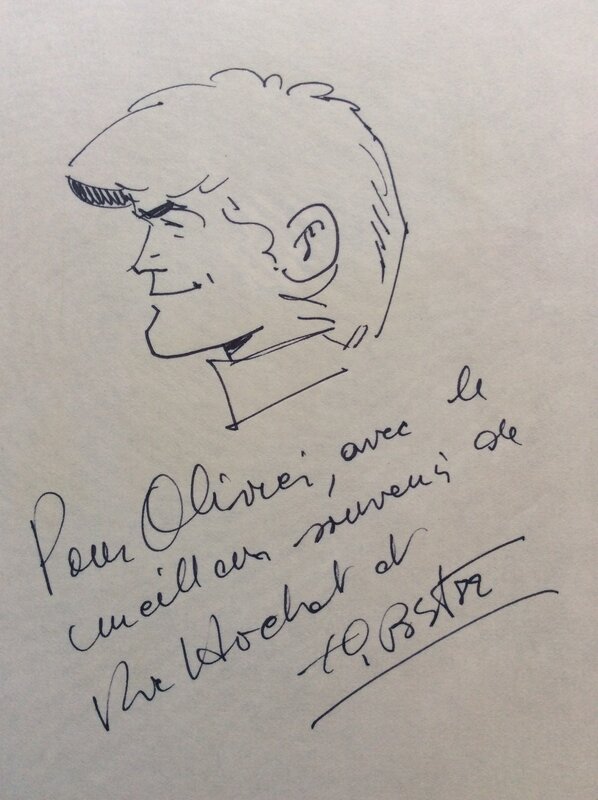 Pour Olivier, avec le
meilleur souvenir de
Ric Hochet et